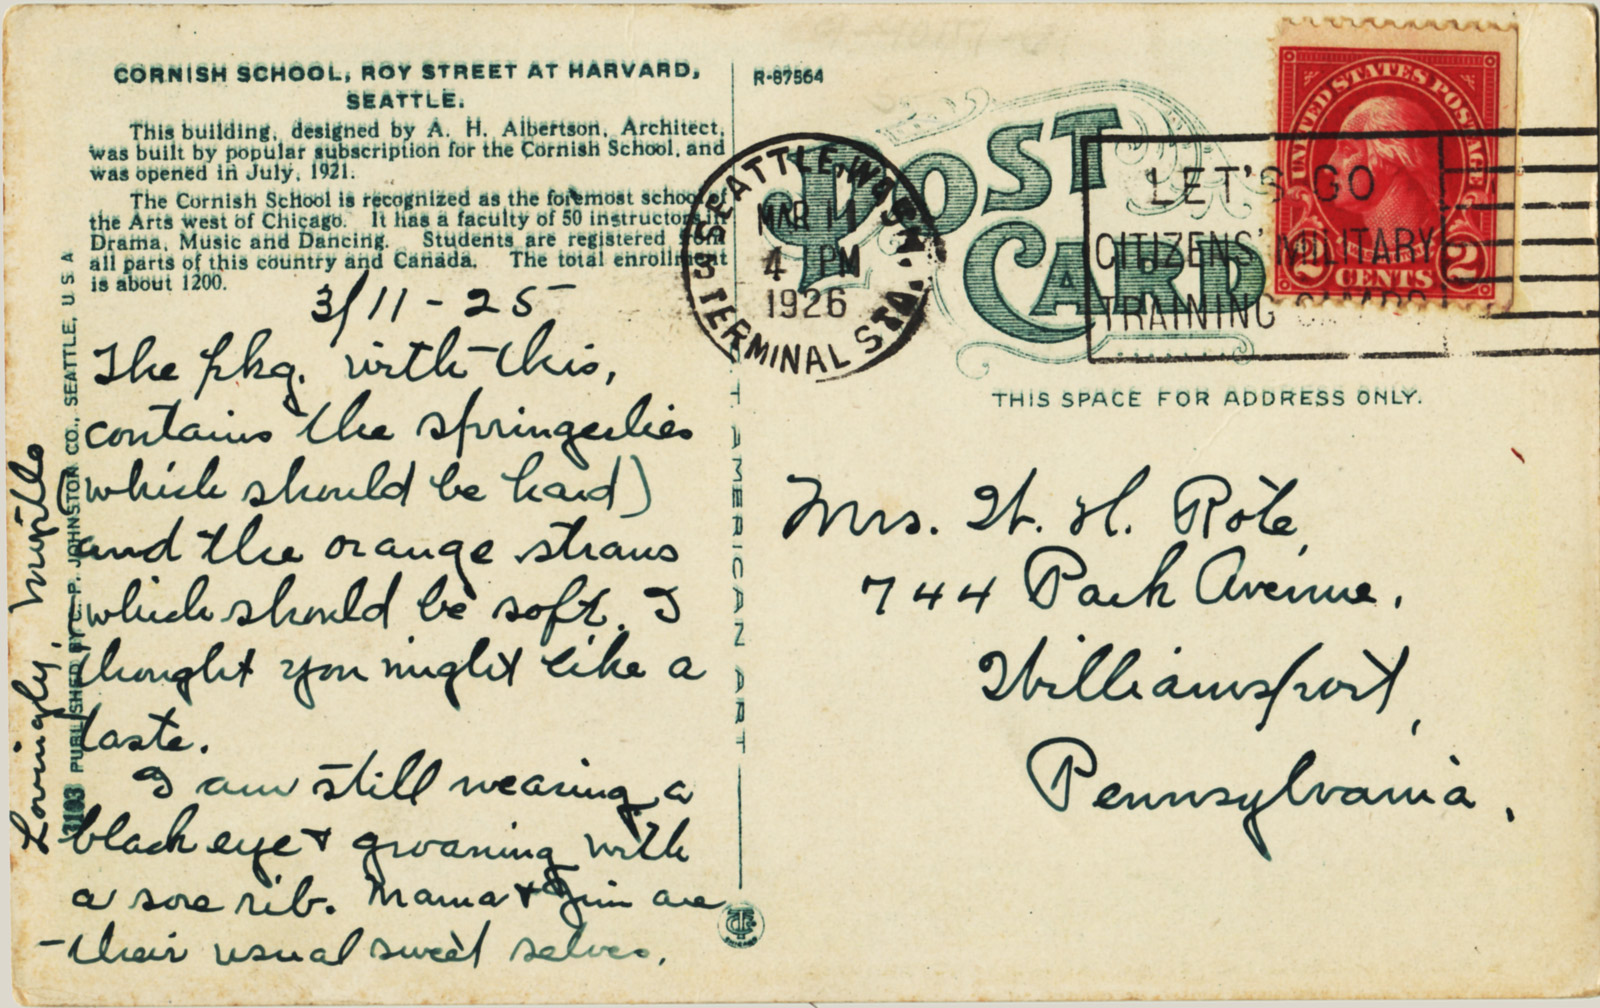 CORNISH SCHOOL, ROY STREET AT HARVARD,
SEATTLE.
This building, designed by A. H. Albertson, Architect,
was built by popular subscription for the Cornish School, and
was opened in July, 1921.
The Cornish School is recognized as the foremost school of
the Arts west of Chicago. It has a faculty of 50 instructors in
Drama, Music and Dancing. Students are registered from
all parts of this country and Canada. The total enrollment
is about 1200.
3/11-25
The pkg. with this,
contains the springerlies
(which should be hard)
and the orange straws
which should be soft. I
thought you might like a
taste.
I am still wearing a
black eye & groaning with
a sore rib. Mama & Jim are
their usual sweet selves.
Lovingly, Myrtle
31193 PUBLISHED BY C. P. JOHNSTON CO., SEATTLE, U S A
R-87564
POST
CARD
SEATTLE, WASH.
MAR 11
4 PM
1926
TERMINAL STA.
LET'S GO
CITIZENS' MILITARY
TRAINING CAMPS
UNITED STATES POSTAGE
2 CENTS 2
THIS SPACE FOR ADDRESS ONLY.
Mrs. W. H. Rote,
744 Park Avenue,
Williamsport,
Pennsylvania.
C.T. AMERICAN ART